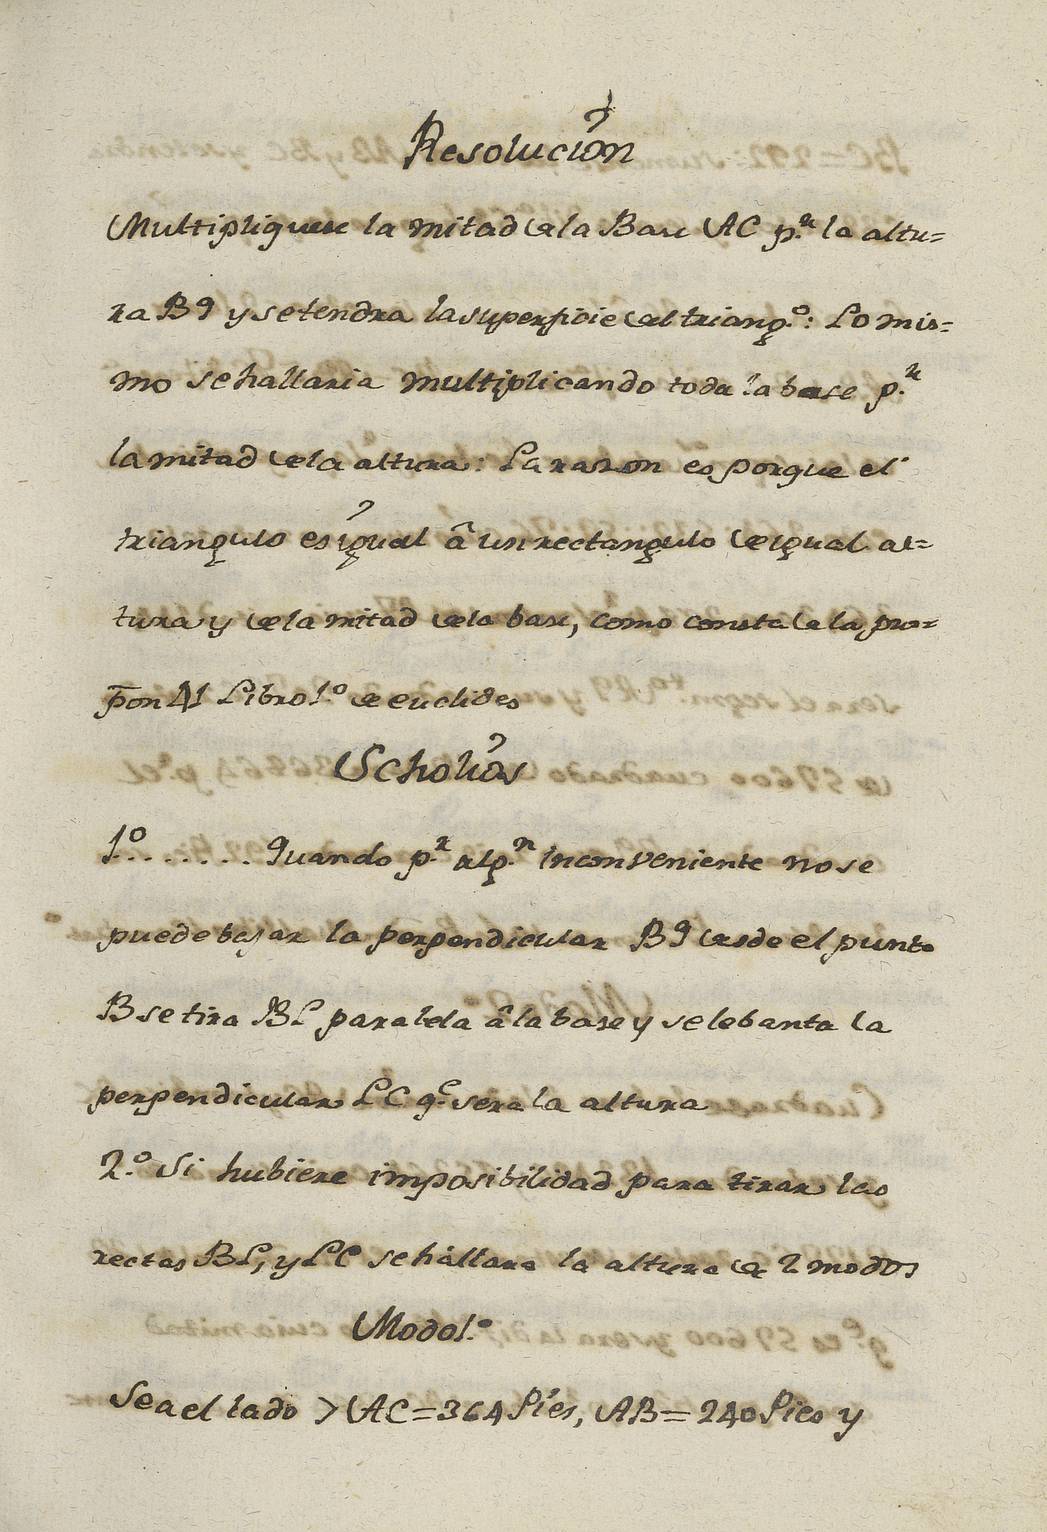 Resolución
Multipliquese la mitad de la Base AC p.r la altu=
ra B9 y se tendra la superficie del triang.o: Lo mis=
mo se hallaria multiplicando toda la base p.r
la mitad de la altura: La razon es porque el
triangulo es igual â un rectangulo de igual al=
tura y de la mitad de la base, como consta de la pro=
pon 41 Libro 1.o de euclides
Scholios
1o........ Quando p.r alg.n inconveniente no se
puede bajar la perpendicular B9 desde el punto
B se tira BL paralela â la base y se lebanta la
perpendicular LC q.e sera la altura
2.o Si hubiere imposibilidad para tirar las
rectas BL, y LC se hallara la altura de 2 modos
Modo 1.o
Sea el lado > AC=364 Pies, AB=240 Pies y